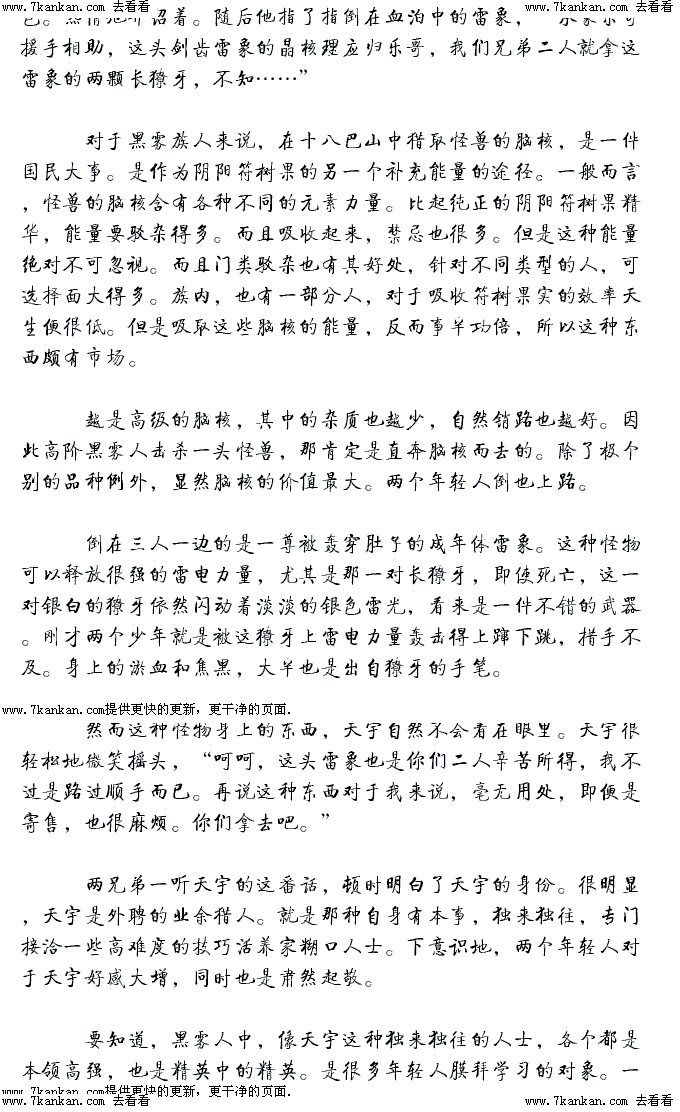 www.7kankan.com 去看看 www.7kankan.com 去看看
着。随后他指了指倒在血泊中的雷象，“
援手相助，这头剑齿雷象的晶核理应归乐哥，我们兄弟二人就拿这
雷象的两颗长獠牙，不知……”
对于黑雾族人来说，在十八巴山中猎取怪兽的脑核，是一件
国民大事。是作为阴阳符树果的另一个补充能量的途径。一般而言
，怪兽的脑核含有各种不同的元素力量。比起纯正的阴阳符树果精
华，能量要驳杂得多。而且吸收起来，禁忌也很多。但是这种能量
绝对不可忽视。而且门类驳杂也有其好处，针对不同类型的人，可
选择面大得多。族内，也有一部分人，对于吸收符树果实的效率天
生便很低。但是吸取这些脑核的能量，反而事半功倍，所以这种东
西颇有市场。
越是高级的脑核，其中的杂质也越少，自然销路也越好。因
此高阶黑雾人击杀一头怪兽，那肯定是直奔脑核而去的。除了极个
别的品种例外，显然脑核的价值最大。两个年轻人倒也上路。
倒在三人一边的是一尊被轰穿肚子的成年体雷象。这种怪物
可以释放很强的雷电力量，尤其是那一对长獠牙，即使死亡，这一
对银白的獠牙依然闪动着淡淡的银色雷光，看来是一件不错的武器
。刚才两个少年就是被这獠牙上雷电力量轰击得上蹿下跳，措手不
及。身上的淤血和焦黑，大半也是出自獠牙的手笔。
www.7kankan.com提供更快的更新，更干净的页面.
然而这种怪物身上的东西，天宇自然不会看在眼里。天宇很
轻松地微笑摇头，“呵呵，这头雷象也是你们二人辛苦所得，我不
过是路过顺手而已。再说这种东西对于我来说，毫无用处，即便是
寄售，也很麻烦。你们拿去吧。”
两兄弟一听天宇的这番话，顿时明白了天宇的身份。很明显
，天宇是外聘的业余猎人。就是那种自身有本事，独来独往，专门
接洽一些高难度的技巧活养家糊口人士。下意识地，两个年轻人对
于天宇好感大增，同时也是肃然起敬。
要知道，黑雾人中，像天宇这种独来独往的人士，各个都是
本领高强，也是精英中的精英。是很多年轻人膜拜学习的对象。一
www.7kankan.com提供更快的更新，更干净的页面.
www.7kankan.com 去看看 www.7kankan.com 去看看